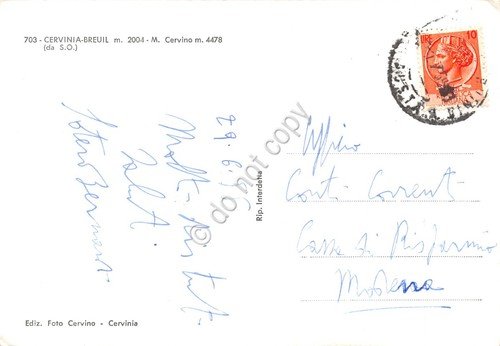 703 - CERVINIA-BREUIL m. 2004 - M. Cervino m. 4478
(da S.O.)
10
29.6.
Molti distinti
saluti
Rip. Interdetta
do not copy
Ufficio
Conti Correnti
Cassa di Risparmio
Modena
Ediz. Foto Cervino - Cervinia